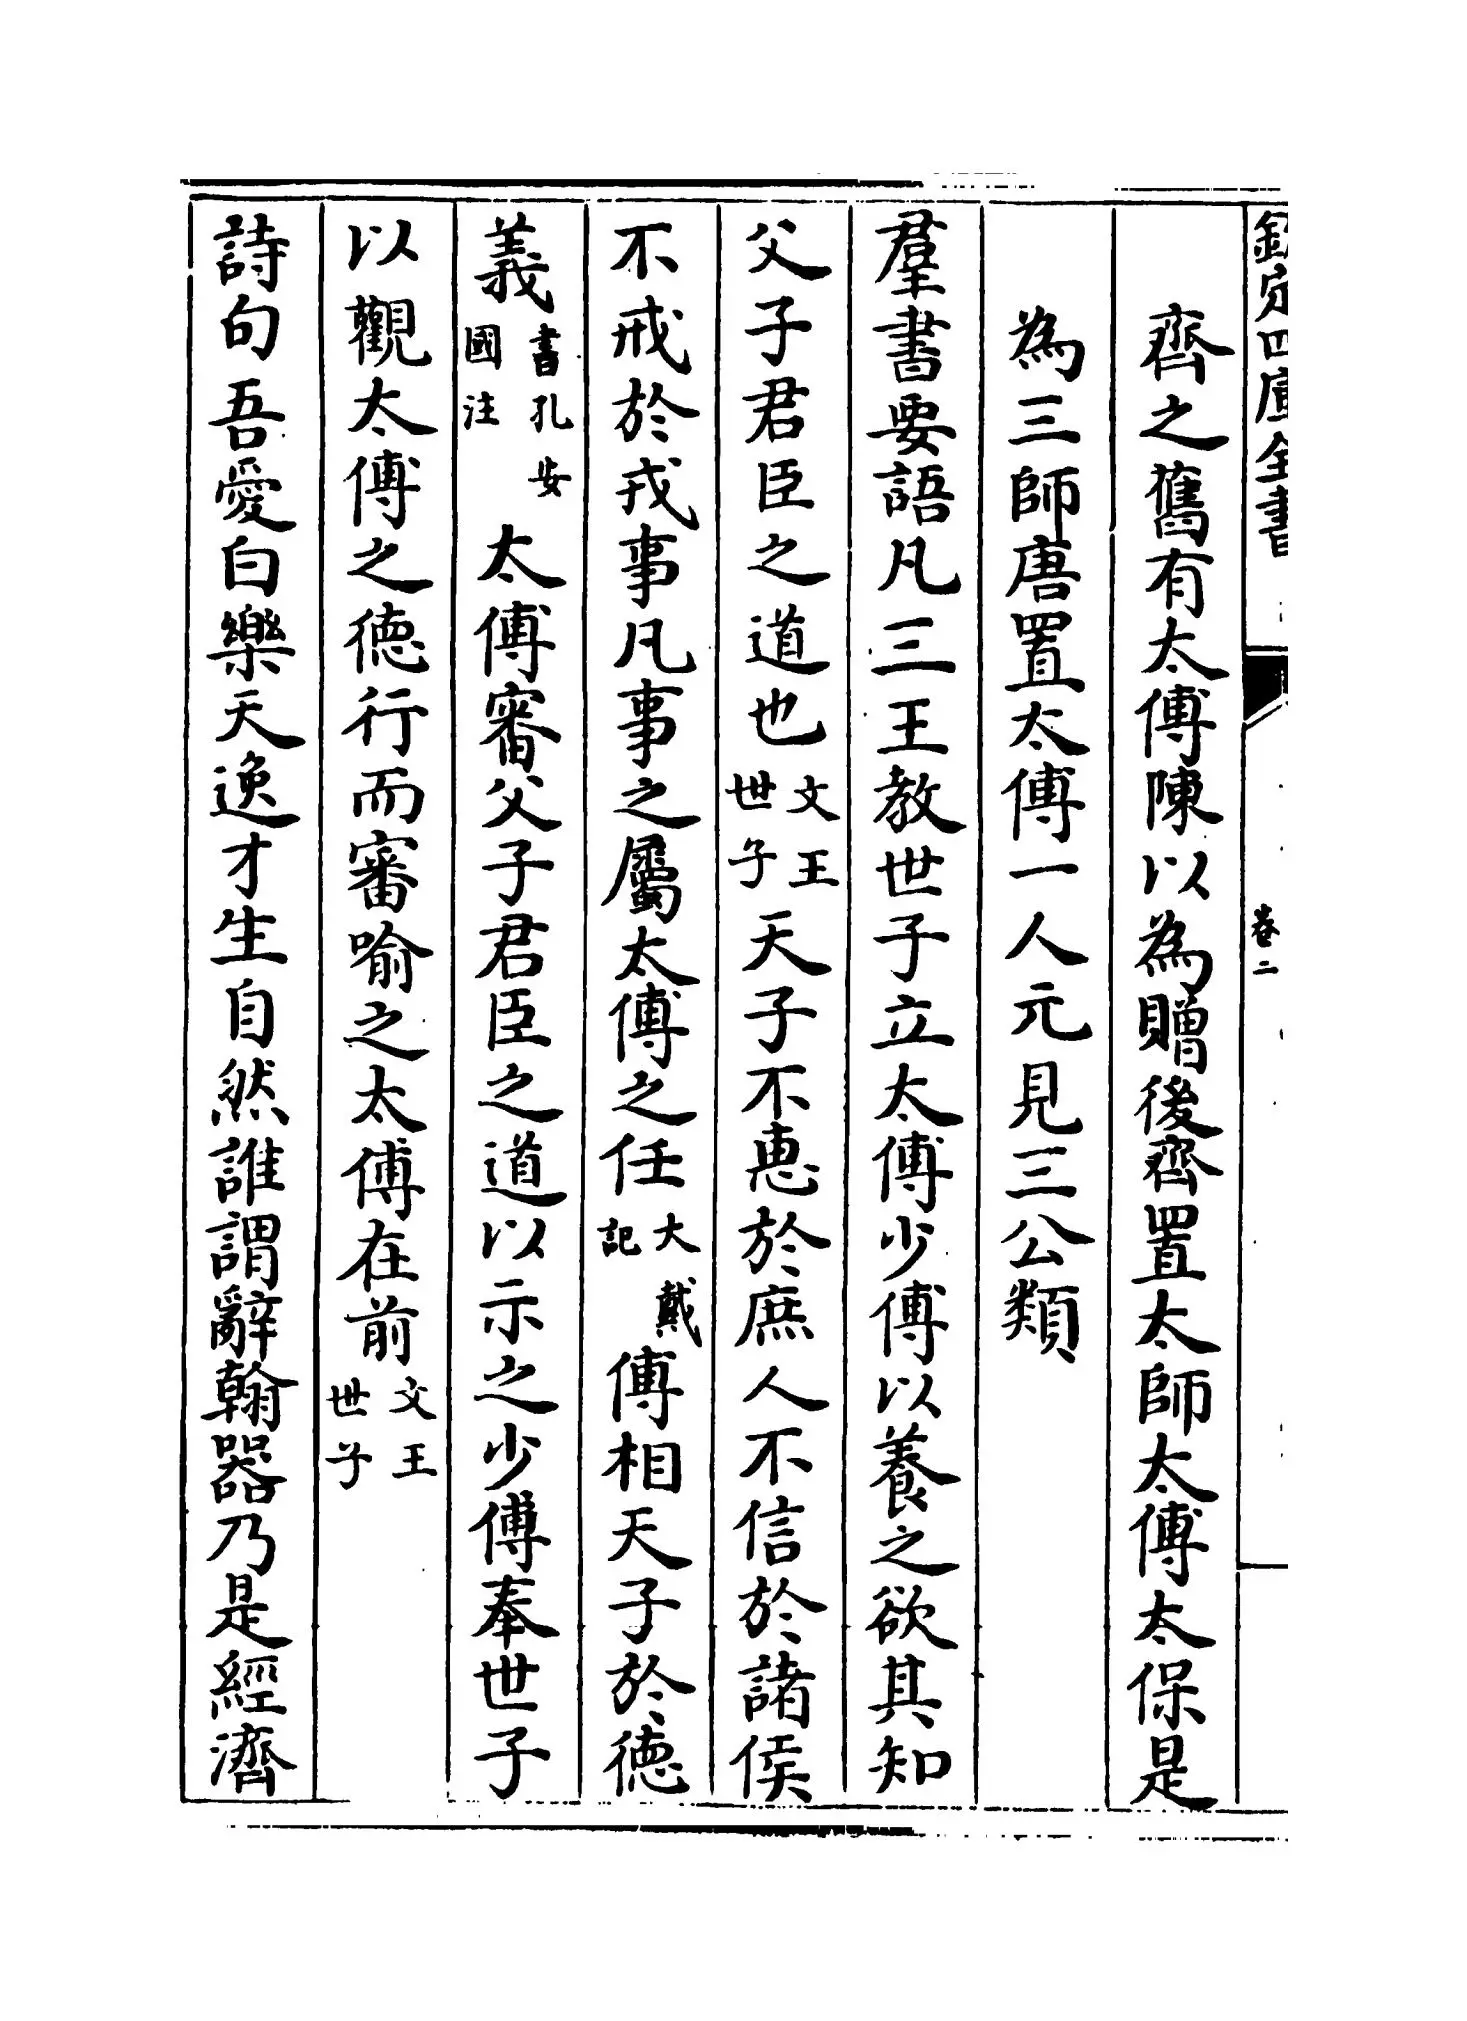 欽定四庫全書
卷二
齊之舊有太傅陳以為贈後齊置太師太傅太保是
為三師唐置太傅一人元見三公類
羣書要語凡三王教世子立太傅少傅以養之欲其知
父子君臣之道也文王世子天子不惠於庶人不信於諸侯
不戒於戎事凡事之屬太傅之任大戴記傅相天子於德
義書孔安國注太傅審父子君臣之道以示之少傅奉世子
以觀太傅之德行而審喻之太傅在前文王世子
詩句吾愛白樂天逸才生自然誰謂辭翰器乃是經濟